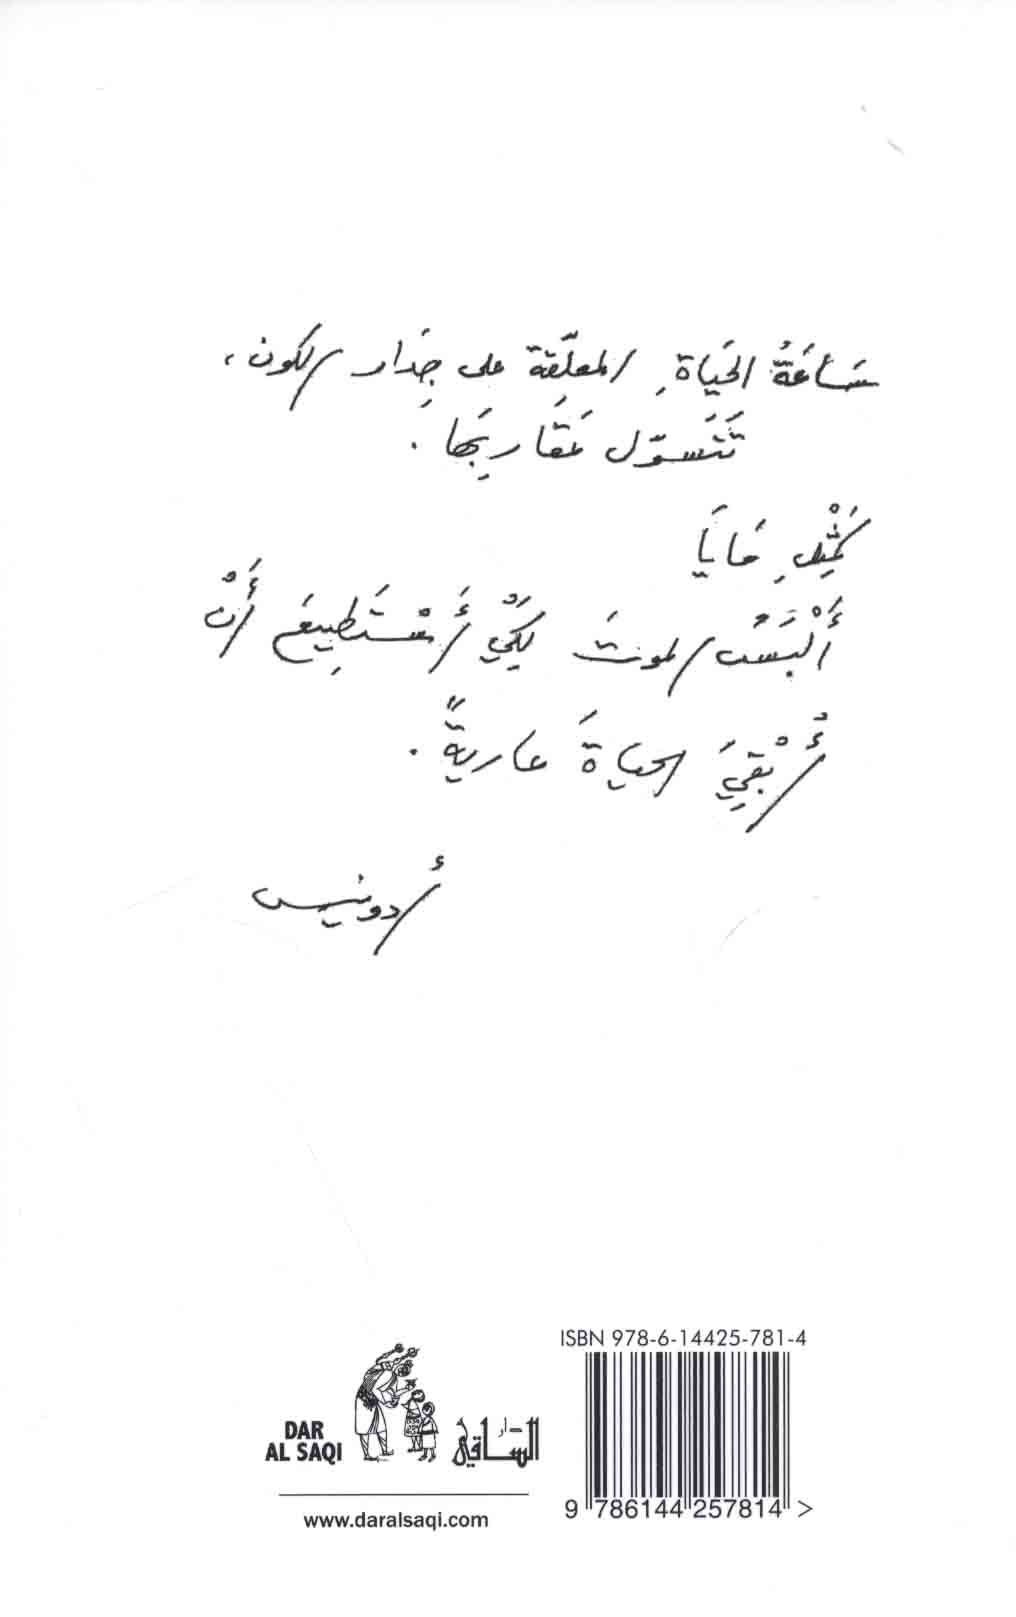 سَاعَةُ الحَيَاةِ المعلّقَة على جِدَار الكون،
تَتَسَوّل عَقَارِبَها.
كَمِثْلِ مَايَا
أَلْبَسُ الموتَ لِكَيْ أَسْتَطِيعَ أَنْ
أُبْقِيَ الحياةَ عاريةً.
أدونيس
ISBN 978-6-14425-781-4
DAR
AL SAQI
دار
الساقي
www.daralsaqi.com
9 786144 257814 >